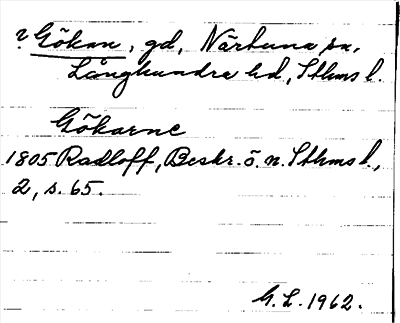 ? Gökan, gd, Närtuna sn,
Långhundra hd, Sthms l.
Gökarne
1805 Radloff, Beskr. ö. n. Sthms l.,
2, s. 65.
G. L. 1962.